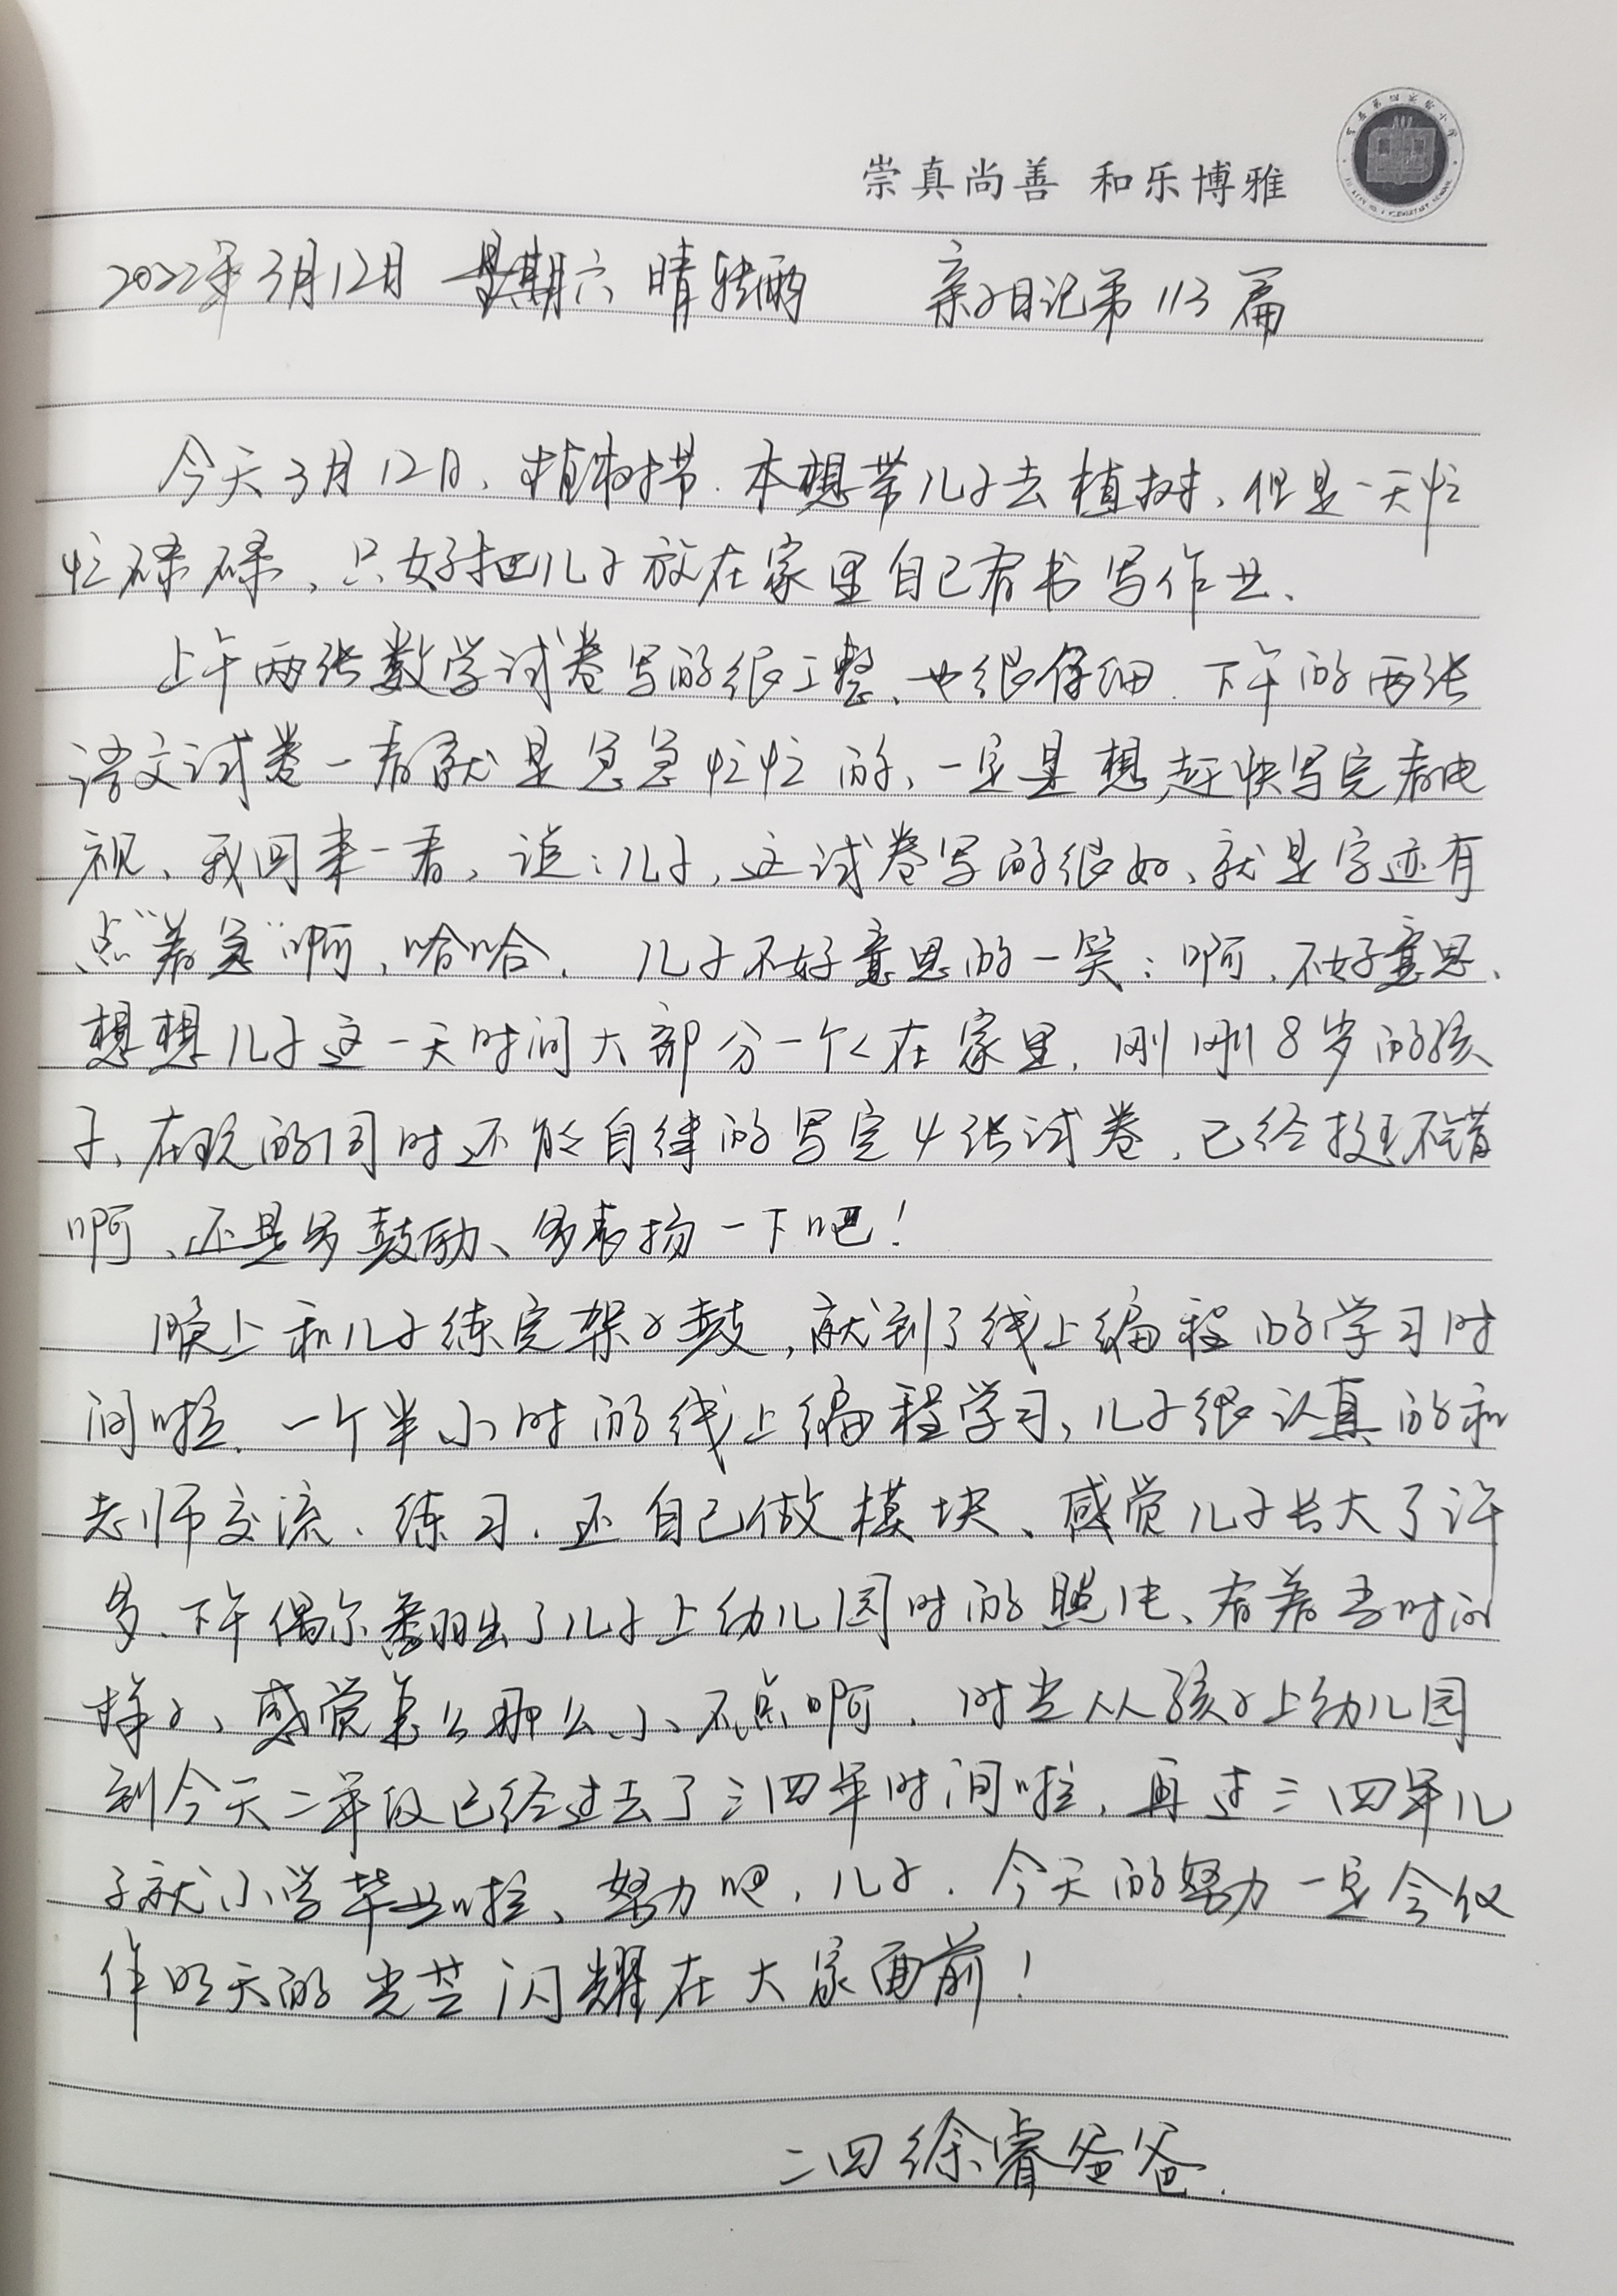 崇真尚善 和乐博雅
2022年3月12日 星期六 晴转雨 亲子日记第113篇
今天3月12日、植树节.本想带儿子去植树、但是一天忙
忙碌碌、只好把儿子放在家里自己看书写作业、
上午两张数学试卷写的很工整、也很仔细.下午的两张
语文试卷一看就是急急忙忙的、一定是想赶快写完看电
视、我回来一看、说:儿子,这试卷写的很好、就是字迹有
点“着急”啊、哈哈.儿子不好意思的一笑:啊、不好意思、
想想儿子这一天时间大部分一个人在家里.刚刚8岁的孩
子、在玩的同时还能自律的写完4张试卷、已经挺不错
啊、还是多鼓励、多表扬一下吧!
晚上和儿子练完架子鼓,就到了线上编程的学习时
间啦、一个半小时的线上编程学习、儿子很认真的和
老师交流、练习.还自己做模块、感觉儿子长大了许
多.下午偶尔翻出了儿子上幼儿园时的照片、看着当时的
样子、感觉怎么那么小不点啊.时光从孩子上幼儿园
到今天二年级已经过去了三四年时间啦,再过三四年儿
子就小学毕业啦、努力吧,儿子.今天的努力一定会化
作明天的光芒闪耀在大家面前!
二四徐睿爸爸.